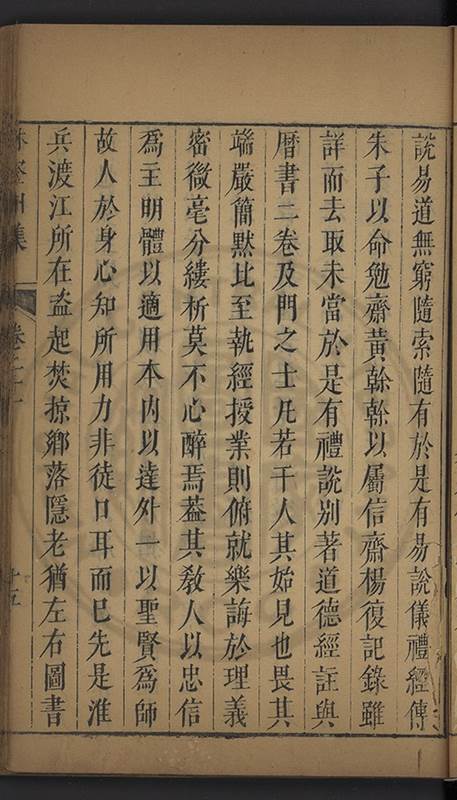 說易道無窮隨索隨有於是有易說儀禮經傳
朱子以命勉齋黃榦榦以屬信齋楊復記錄雖
詳而去取未當於是有禮說别著道德經註與
曆書二卷及門之士凡若干人其始見也畏其
端嚴簡默比至執經授業則俯就樂誨於理義
密微毫分縷析莫不心醉焉葢其敎人以忠信
爲主明體以適用本内以達外一以聖賢爲師
故人於身心知所用力非徒口耳而已先是淮
兵渡江所在盗起焚掠鄉落隱老猶左右圖書
集 卷之二十 十五